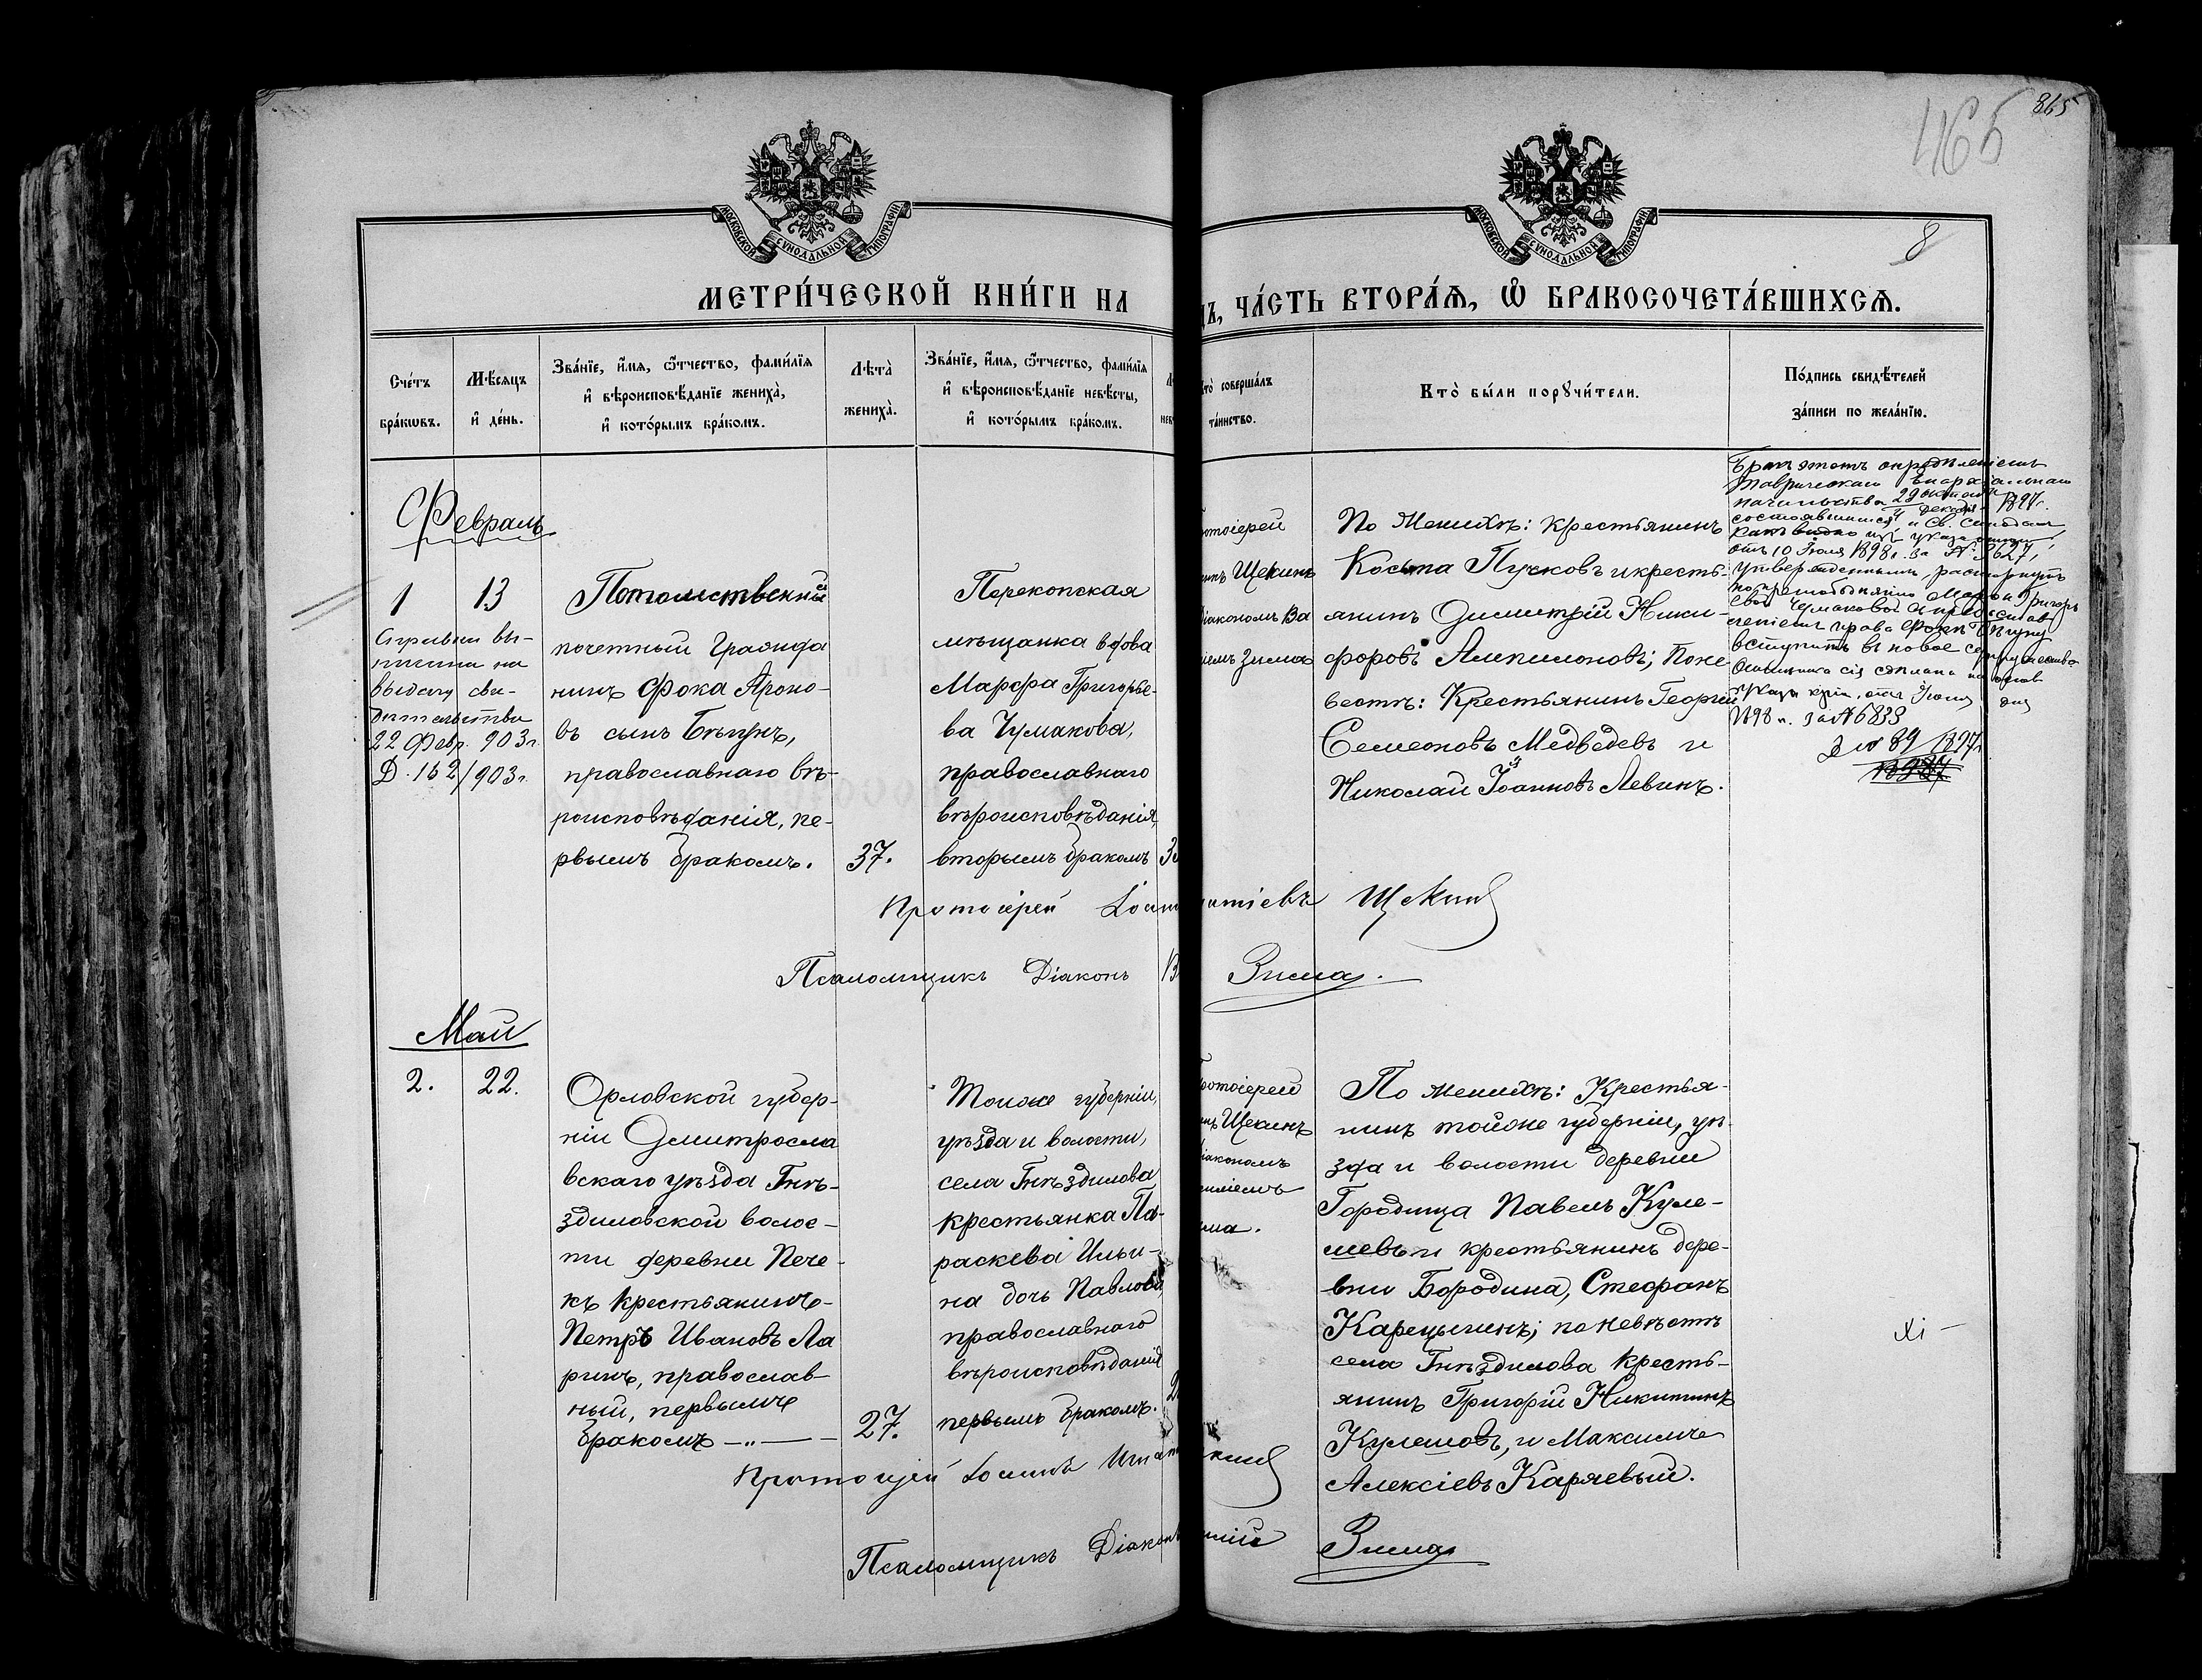 865
465
8
МОСКОВСКОЙ СѴНОДАЛЬНОЙ ТИПОГРАФІИ
МОСКОВСКОЙ СѴНОДАЛЬНОЙ ТИПОГРАФІИ
МЕТРИ́ЧЕСКОЙ КНИ́ГИ НА
ЧА́СТЬ ВТОРА́Ѧ, Ѽ БРАКОСОЧЕТА́ВШИХСѦ.
Сче́тъ
бра́кѡвъ.
Мѣ́сѧцъ
и҆ де́нь.
Зва́нїе, и҆́мѧ, ѻ҆́тчество, фами́лїѧ
и҆ вѣроисповѣ́данїе жениха̀,
и҆ кото́рымъ бра́комъ.
Лѣта̀
жениха̀.
Зва́нїе, и҆́мѧ, ѻ҆́тчество, фами́лїѧ
и҆ вѣроисповѣ́данїе невѣ́сты,
и҆ кото́рымъ бра́комъ.
совершáлъ
тáинство.
Кто̀ бы́ли порꙋчи́тели.
По́дпись свидѣ́телей
за́писи по жела́нїю.
Февраль
1
13
на
выдачу сви-
дѣтельства
22 Февр. 903 г.
Д. 152/903 г.
Потомственный
почетный Гражда
нинъ Фока Ароно-
въ сынъ Бѣгунъ,
православнаго вѣ-
роисповѣданія, пе-
рвымъ бракомъ.
37.
Перекопская
мѣщанка вдова
Марфа Григорье-
ва Чумакова,
православнаго
вѣроисповѣданія,
вторымъ бракомъ
Щекинъ
Діакономъ Ва
Зима
По Женихѣ: крестьянинъ
Косьма Пусковъ и кресть-
янинъ Димитрій Ники-
форовъ Ампилоновъ; По не
вестѣ: Крестьянинъ Георгій
Семеоновъ Медведевъ и
Николай Іоанновъ Левинъ.
Бракъ этотъ опредѣленіемъ
Таврическаго Епархіальнаго
начальства 29 Октября 1897 г.
состоявшимся и Св. Синодомъ
какъ видно изъ указа
отъ 10 Іюля 1898 г. за № 3627,
утвержденнымъ, расторгнутъ
Марфы Григорь
евой Чумаковой
права Фокѣ Бѣгуну
вступить въ новое супружество
сія сдѣлана
указа
1898 г. за № 6833
89/1897 г.
Протоіерей
Щекинъ
Псаломщикъ Діаконъ
Зима.
Май
2.
22.
Орловской губер-
ніи Дмитросла
вскаго уѣзда Гнѣ-
здиловской волос-
ти деревни Пече-
къ крестьянинъ
Петръ Ивановъ Ла
ринъ, православ-
ный, первымъ
бракомъ
27.
Тойже губерніи,
уѣзда и волости,
села Гнѣздилова
крестьянка Па-
раскева Ильи-
на дочь Павлова
православнаго
вѣроисповѣданія
первымъ бракомъ.
Щекинъ
По женихѣ: Крестья-
нинъ тойже губерніи, уѣ-
зда и волости деревни
Городища Павелъ Куле-
шевъ и крестьянинъ дере-
вни Бородина, Стефанъ
Карецыгинъ; по невѣстѣ
села Гнѣздилова кресть-
янинъ Григорій Никитинъ
Кулешовъ, и Максимъ
Алексіевъ Каряевый.
Протоіерей Іоаннъ
Псаломщикъ Діаконъ
Зима